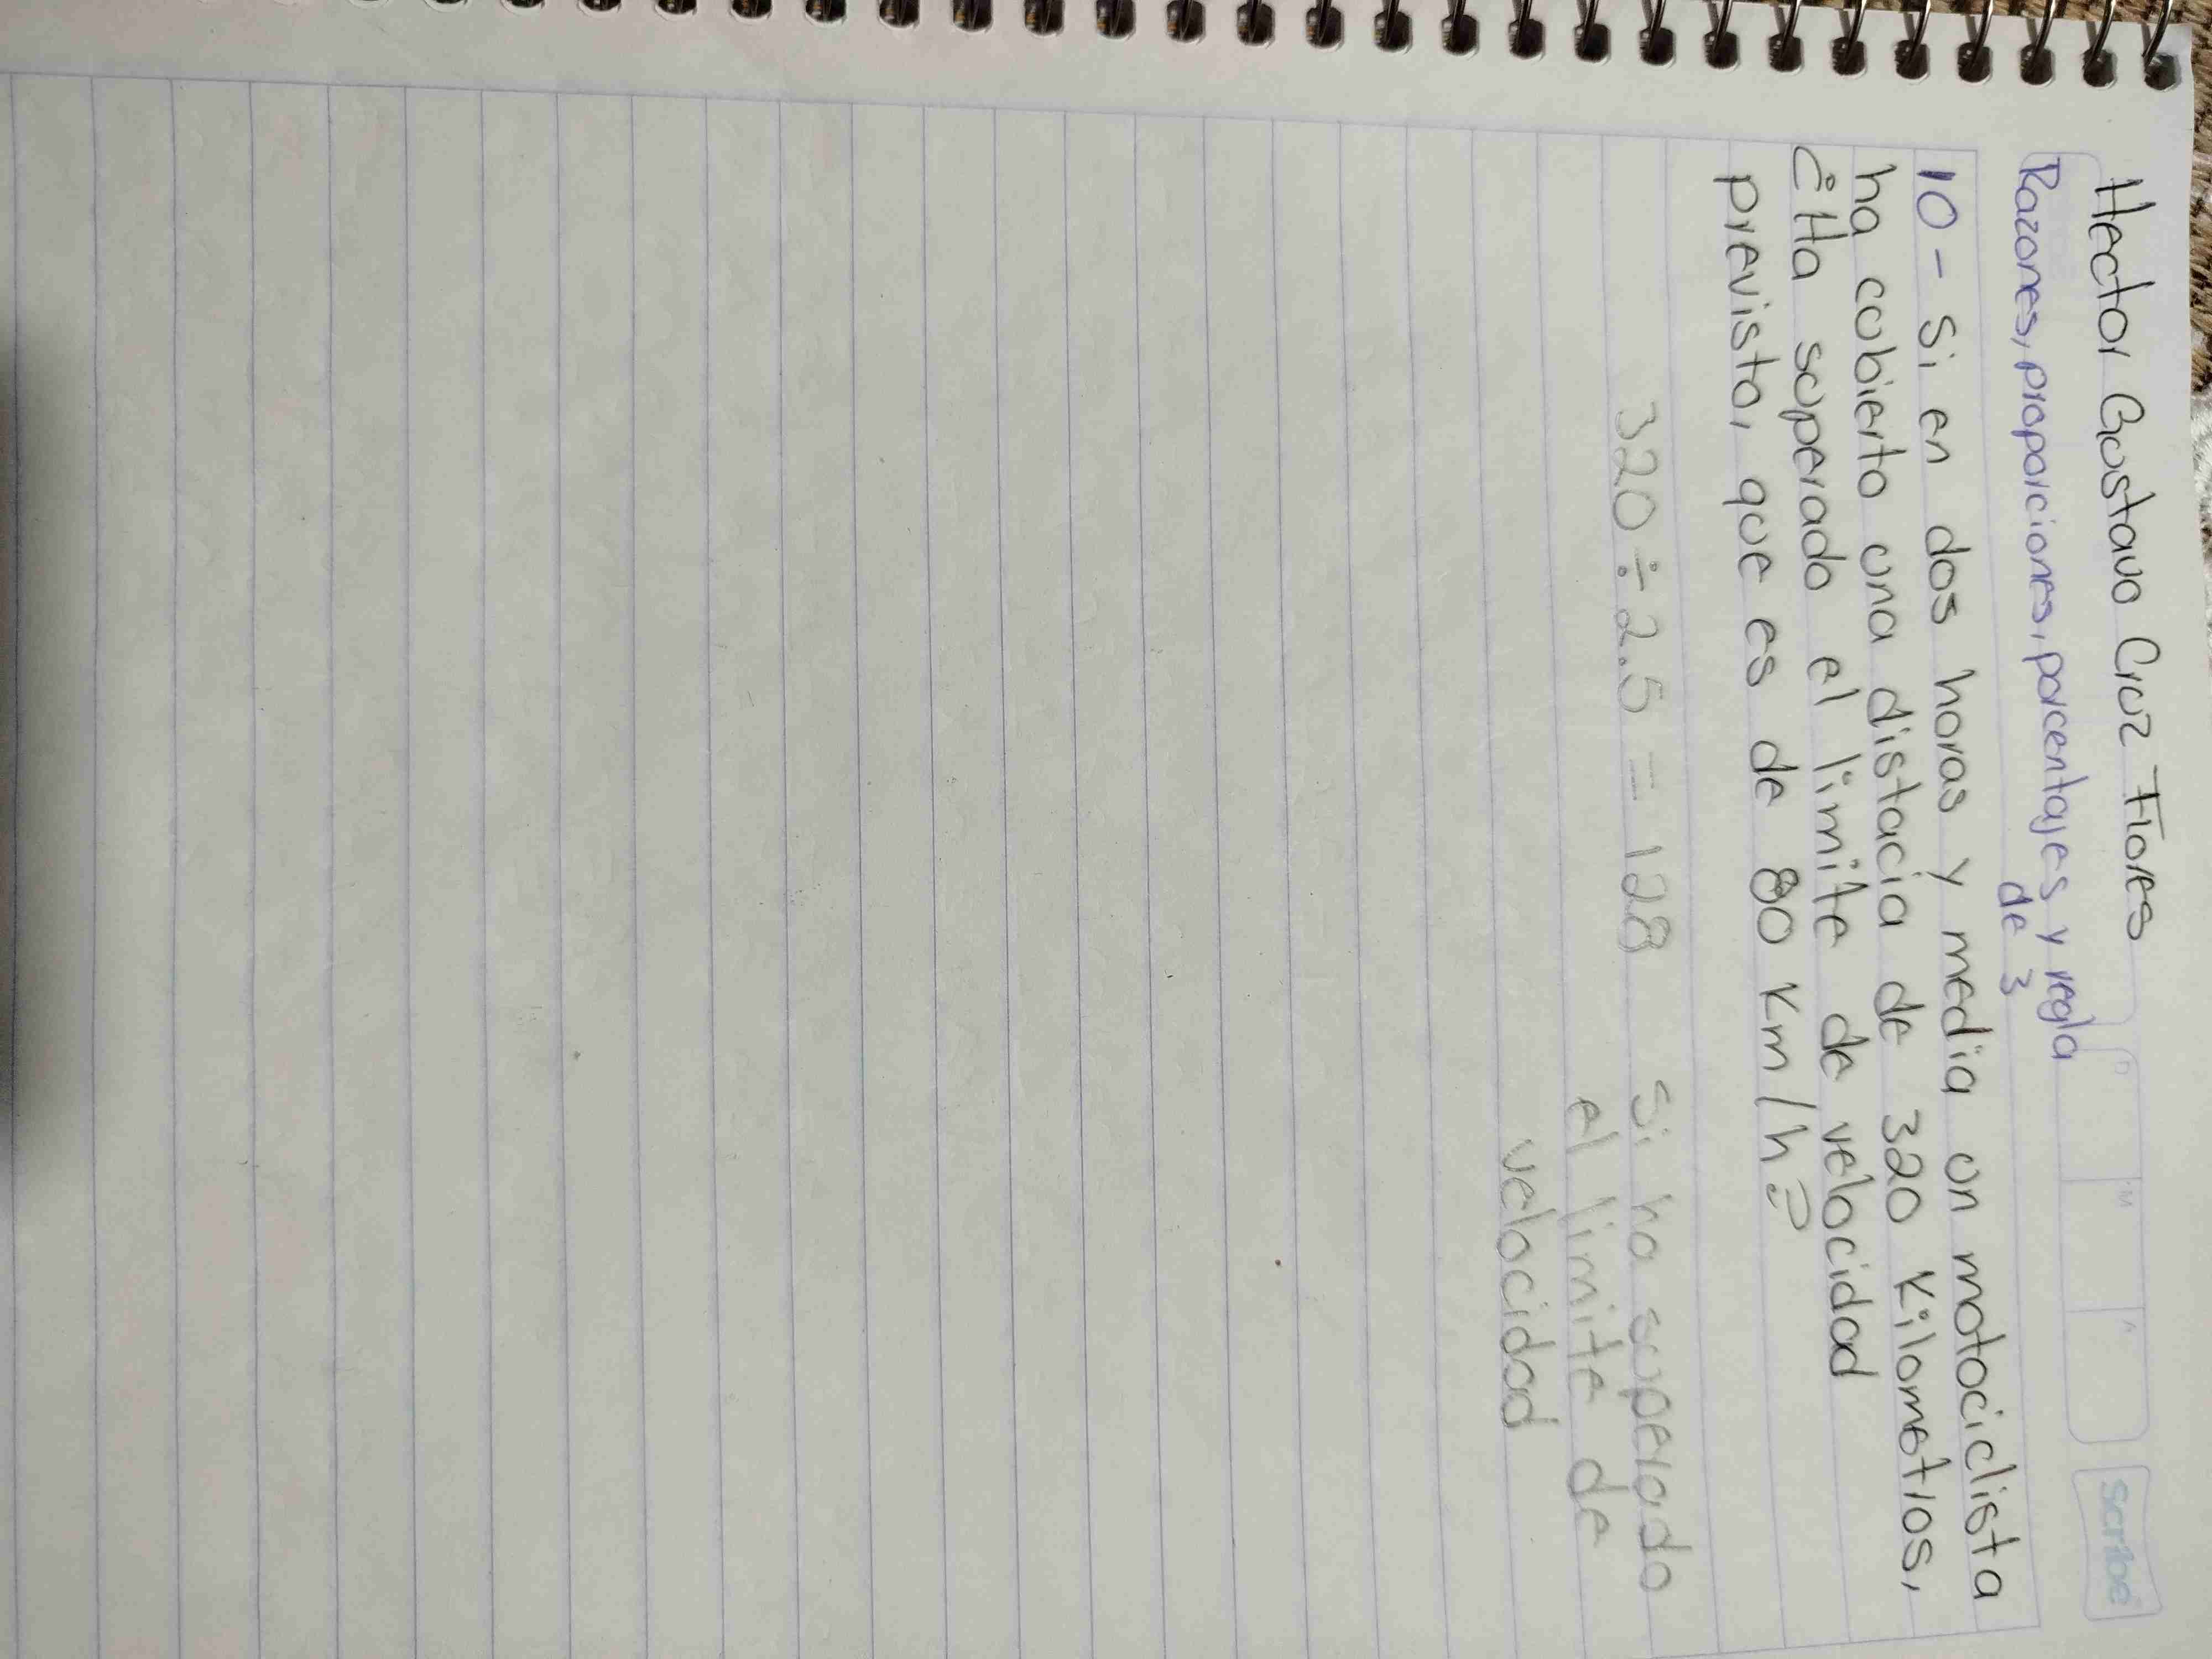 Hector Gustavo Cruz Flores
D M A
scribe
Razones, proporciones, porcentajes y regla
de 3
10- Si en dos horas y media un motociclista
ha cobierto una distacia de 320 Kilometros,
¿Ha superado el limite de velocidad
previsto, que es de 80 Km/h?
320 ÷ 2.5 = 128 Si ha superado
el limite de
velocidad